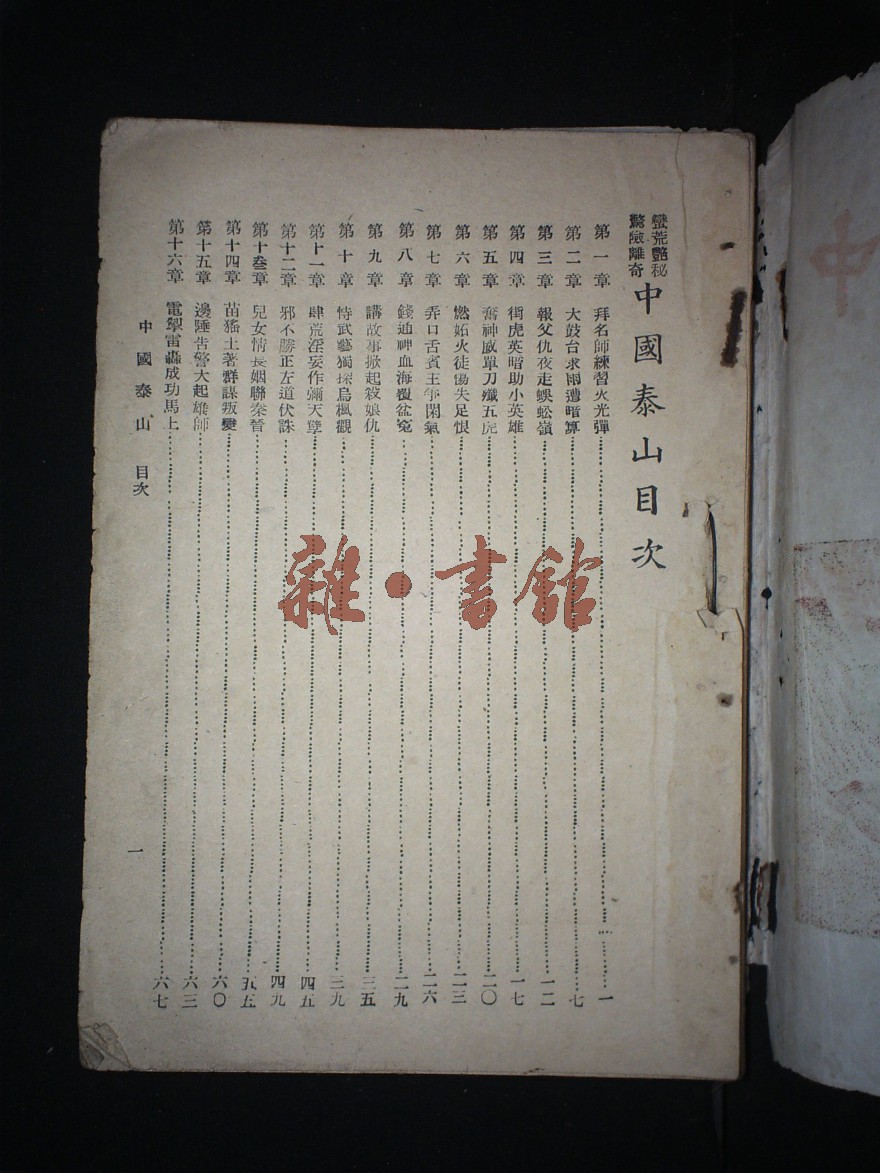 蠻荒艷秘
驚險離奇
中國泰山目次
第一章 拜名師練習火光彈 一
第二章 大鼓台求雨遭暗算 七
第三章 報父仇夜走蜈蚣嶺 一二
第四章 衖虎英暗助小英雄 一七
第五章 奮神威單刀殲五虎 二〇
第六章 燃妬火徒傷失足恨 二三
第七章 弄口舌賓主爭閑氣 二六
第八章 錢通神血海覆盆寃 二九
第九章 講故事掀起殺娘仇 三五
第十章 恃武藝獨探烏楓觀 三九
第十一章 肆荒淫妄作彌天孽 四五
第十二章 邪不勝正左道伏誅 四九
第十叁章 兒女情長姻聯秦晉 五五
第十四章 苗猺土著群謀叛變 六〇
第十五章 邊陲告警大起雄師 六三
第十六章 電掣雷轟成功馬上 六七
中國泰山 目次
一
雜·書館
中